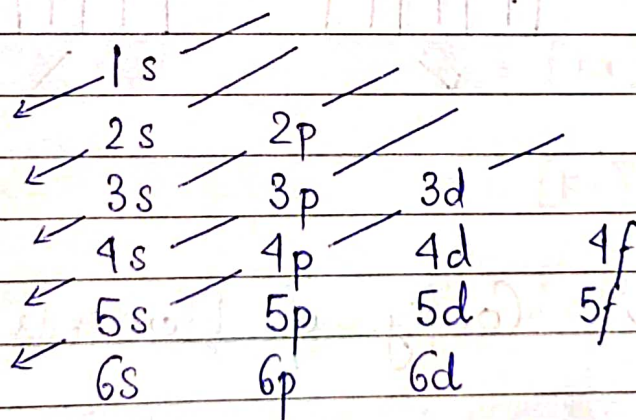 1s
2s 2p
3s 3p 3d
4s 4p 4d 4f
5s 5p 5d 5f
6s 6p 6d